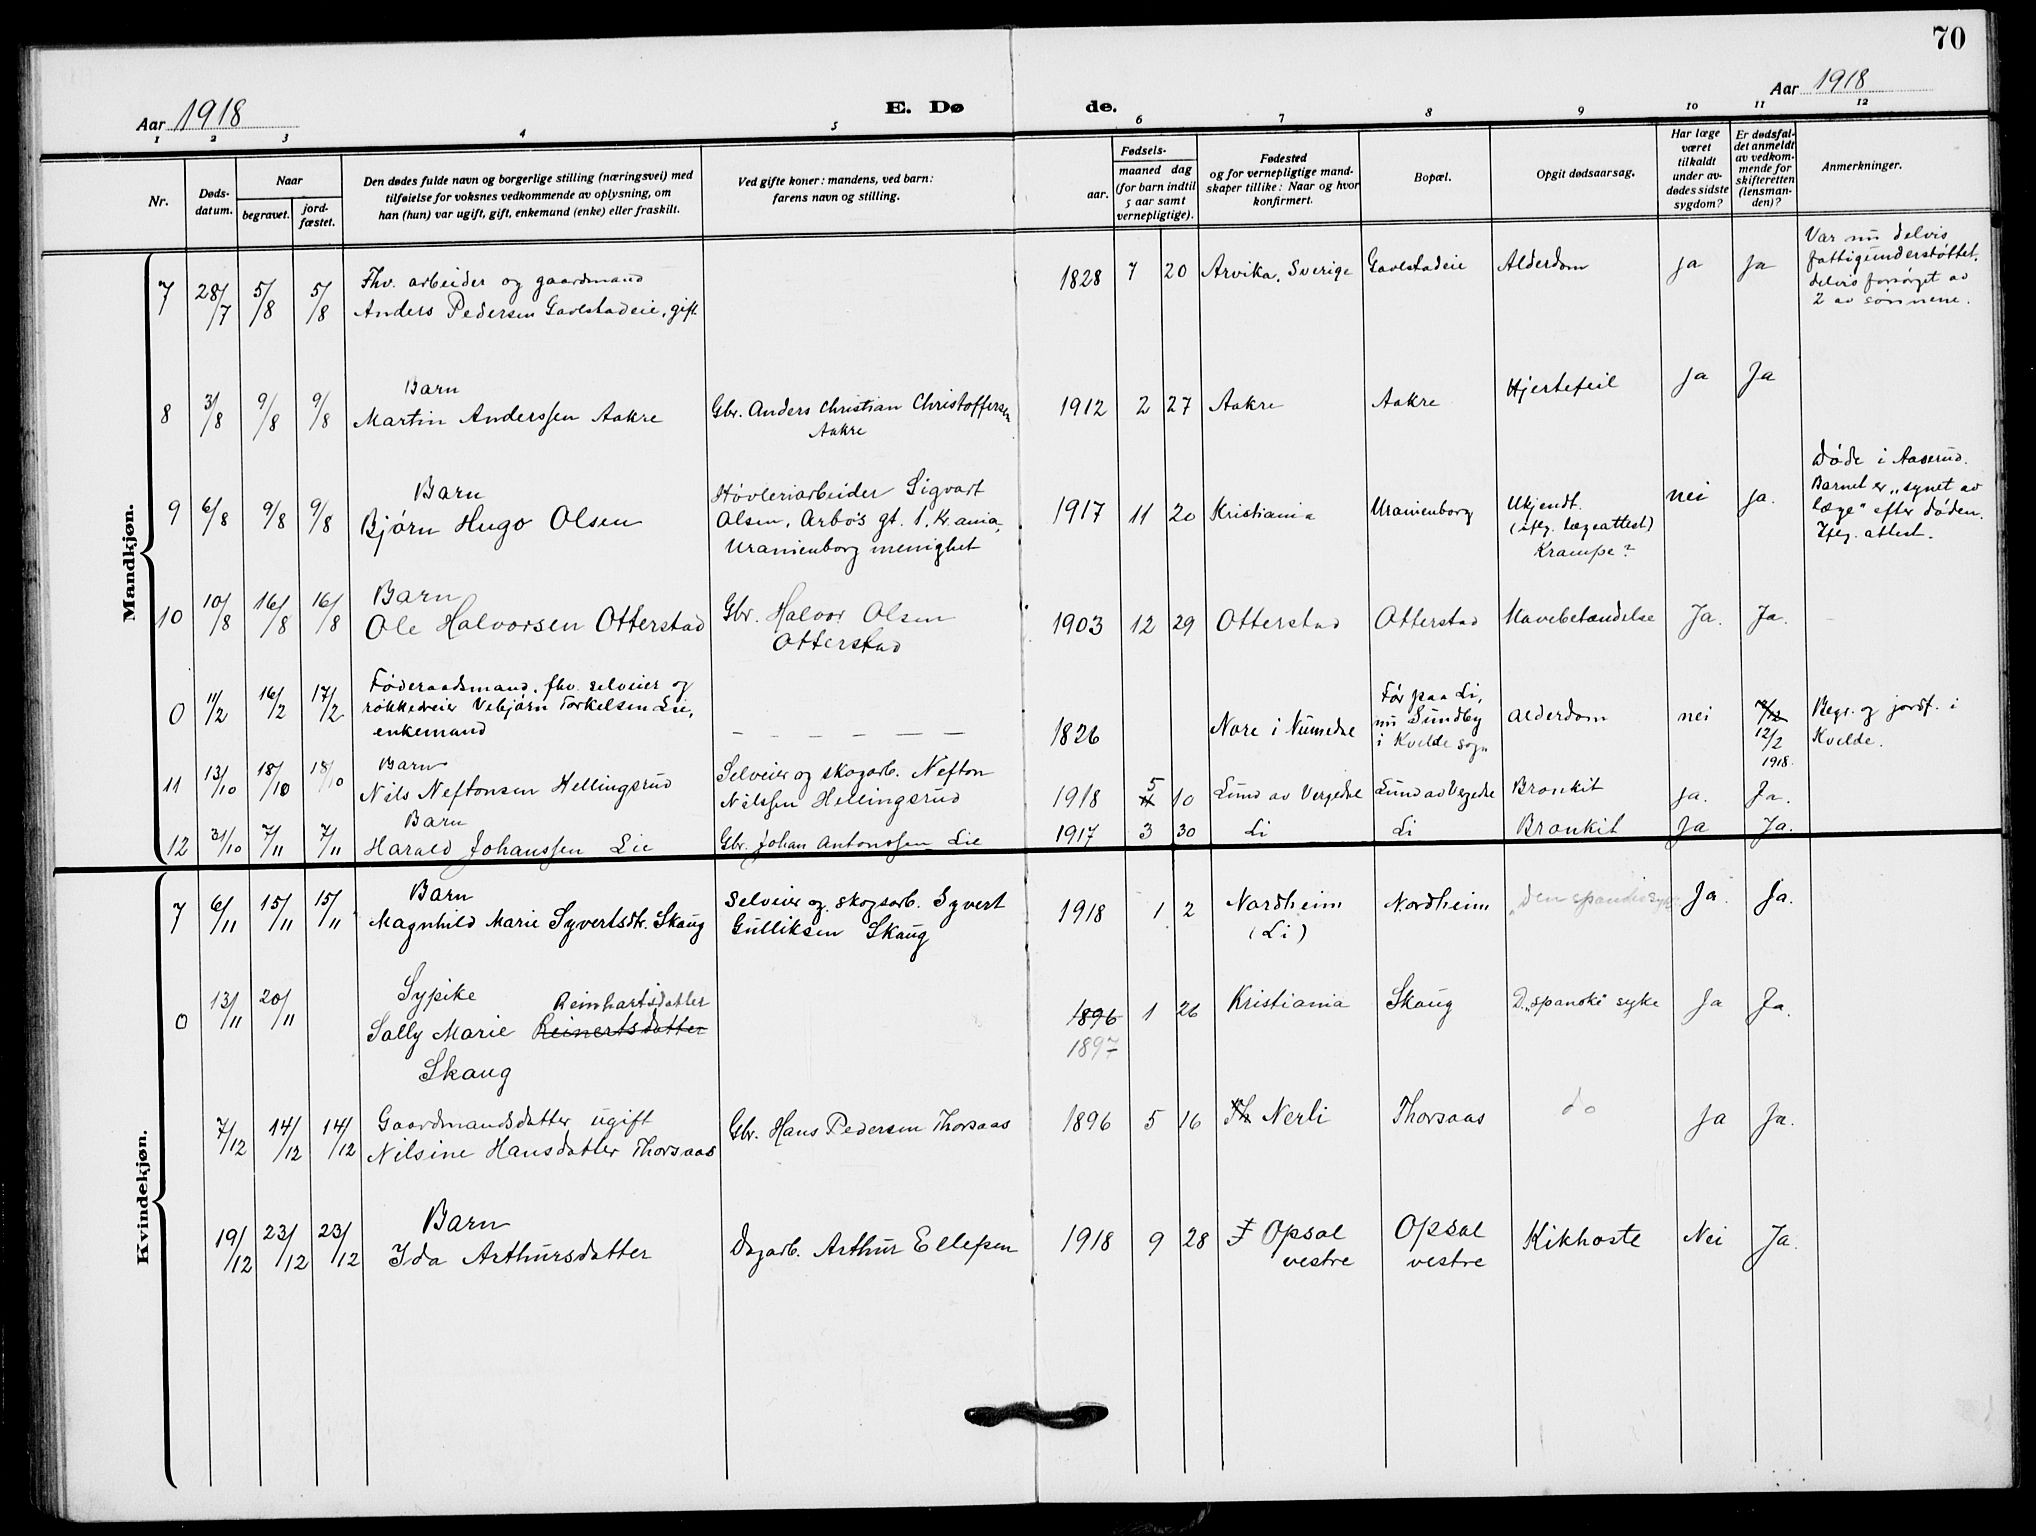 70
Aar 1918
E. Dø de.
Aar 1918
1 2 3 4 5 6 7 8 9 10 11 12
Nr.
Døds-
datum.
Naar
begravet.
jord-
fæstet.
Den dødes fulde navn og borgerlige stilling (næringsvei) med
tilføielse for voksnes vedkommende av oplysning, om
han (hun) var ugift, gift, enkemund (enke) eller fraskilt.
Ved gifte koner: mandens, ved barn:
farens navn og stilling.
Fødsels-
aar.
maaned dag
(for barn indtil
5 aar samt
vernepligtige).
Fødested
og for vernepligtige mand-
skaper tillike: Naar og hvor
konfirmert.
Bopæl.
Opgit dødsaarsag.
Har læge
været
tilkaldt
under av-
dødes sidste
sygdom?
Er dødsfal-
det anmeldt
av vedkom-
mende for
skifteretten
(lensman-
den)?
Anmerkninger.
Mandkjøn.
7 28/7 5/8 5/8
Fhv. arbeider og gaardmand
Anders Pedersen Gavlstadeie, gift
1828 7 20 Arvika, Sverige Gavlstadeie Alderdom ja ja
Var nu delvis
fattigunderstøttet,
delvis forsørget av
2 av sønnene.
8 3/8 9/8 9/8
Barn
Martin Anderssen Aakre
Gbr. Anders Christian Christoffersen
Aakre
1912 2 27 Aakre Aakre Hjertefeil ja Ja
9 6/8 9/8 9/8
Barn
Bjørn Hugo Olsen
Høvleriarbeider Sigvart
Olsen, Arbo's gt. 1, Kr.ania,
Uranienborg menighet
1917 11 20 Kristiania Uranienborg
Ukjendt.
(iflg. lægeattest)
Krampe?
nei ja.
Døde i Aaserud.
Barnet er "synet av
læge" efter døden.
Iflg. attest.
10 10/8 16/8 16/8
Barn
Ole Halvorsen Otterstad
Gbr. Halvor Olsen
Otterstad
1903 12 29 Otterstad Otterstad Mavebetændelse Ja. Ja.
0 11/2 16/2 17/2
Føderaadsmand, fhv. selveier og
rokkedreier Vebjørn Torkelsen Lie,
enkemand
1826 Nore i Numedal
Før paa Li,
nu Sundby
i Kvelde sogn
Alderdom nei
12/2
1918.
Begr. og jordf. i
Kvelde.
11 13/10 18/10 18/10
Barn
Nils Neftonsen Hellingsrud
Selveier og skogarb. Nefton
Nilssen Hellingsrud
1918 5 10 Lund av Vegedal Lund av Vegedal Bronkit ja. Ja.
12 31/10 7/11 7/11
Barn
Harald Johanssen Lie
Gbr. Johan Antonssen Lie
1917 3 30 Li Li Bronkit Ja Ja.
Kvindekjøn.
7 6/11 15/11 15/11
Barn
Magnhild Marie Syvertsdtr. Skaug
Selveier og skogsarb. Syvert
Gulliksen Skaug
1918 1 2
Nordheim
(Li)
Nordheim "Den spanske syke" Ja. Ja.
0 13/11 20/11
Sypike
Reinhartsdatter
Sally Marie Reinertsdatter
Skaug
1896 1 26 Kristiania Skaug D. "spanske" syke Ja Ja.
1897
7/12 14/12 14/12
Gaardmandsdatter ugift
Nilsine Hansdatter Thorsaas
Gbr. Hans Pedersen Thorsaas
1896 5 16 Th Nerli Thorsaas do ja ja.
19/12 23/12 23/12
Barn
Ida Arthursdatter
Dagarb. Arthur Ellefsen
1918 9 28
Opsal
vestre
Opsal
vestre
Kikhoste Nei Ja.